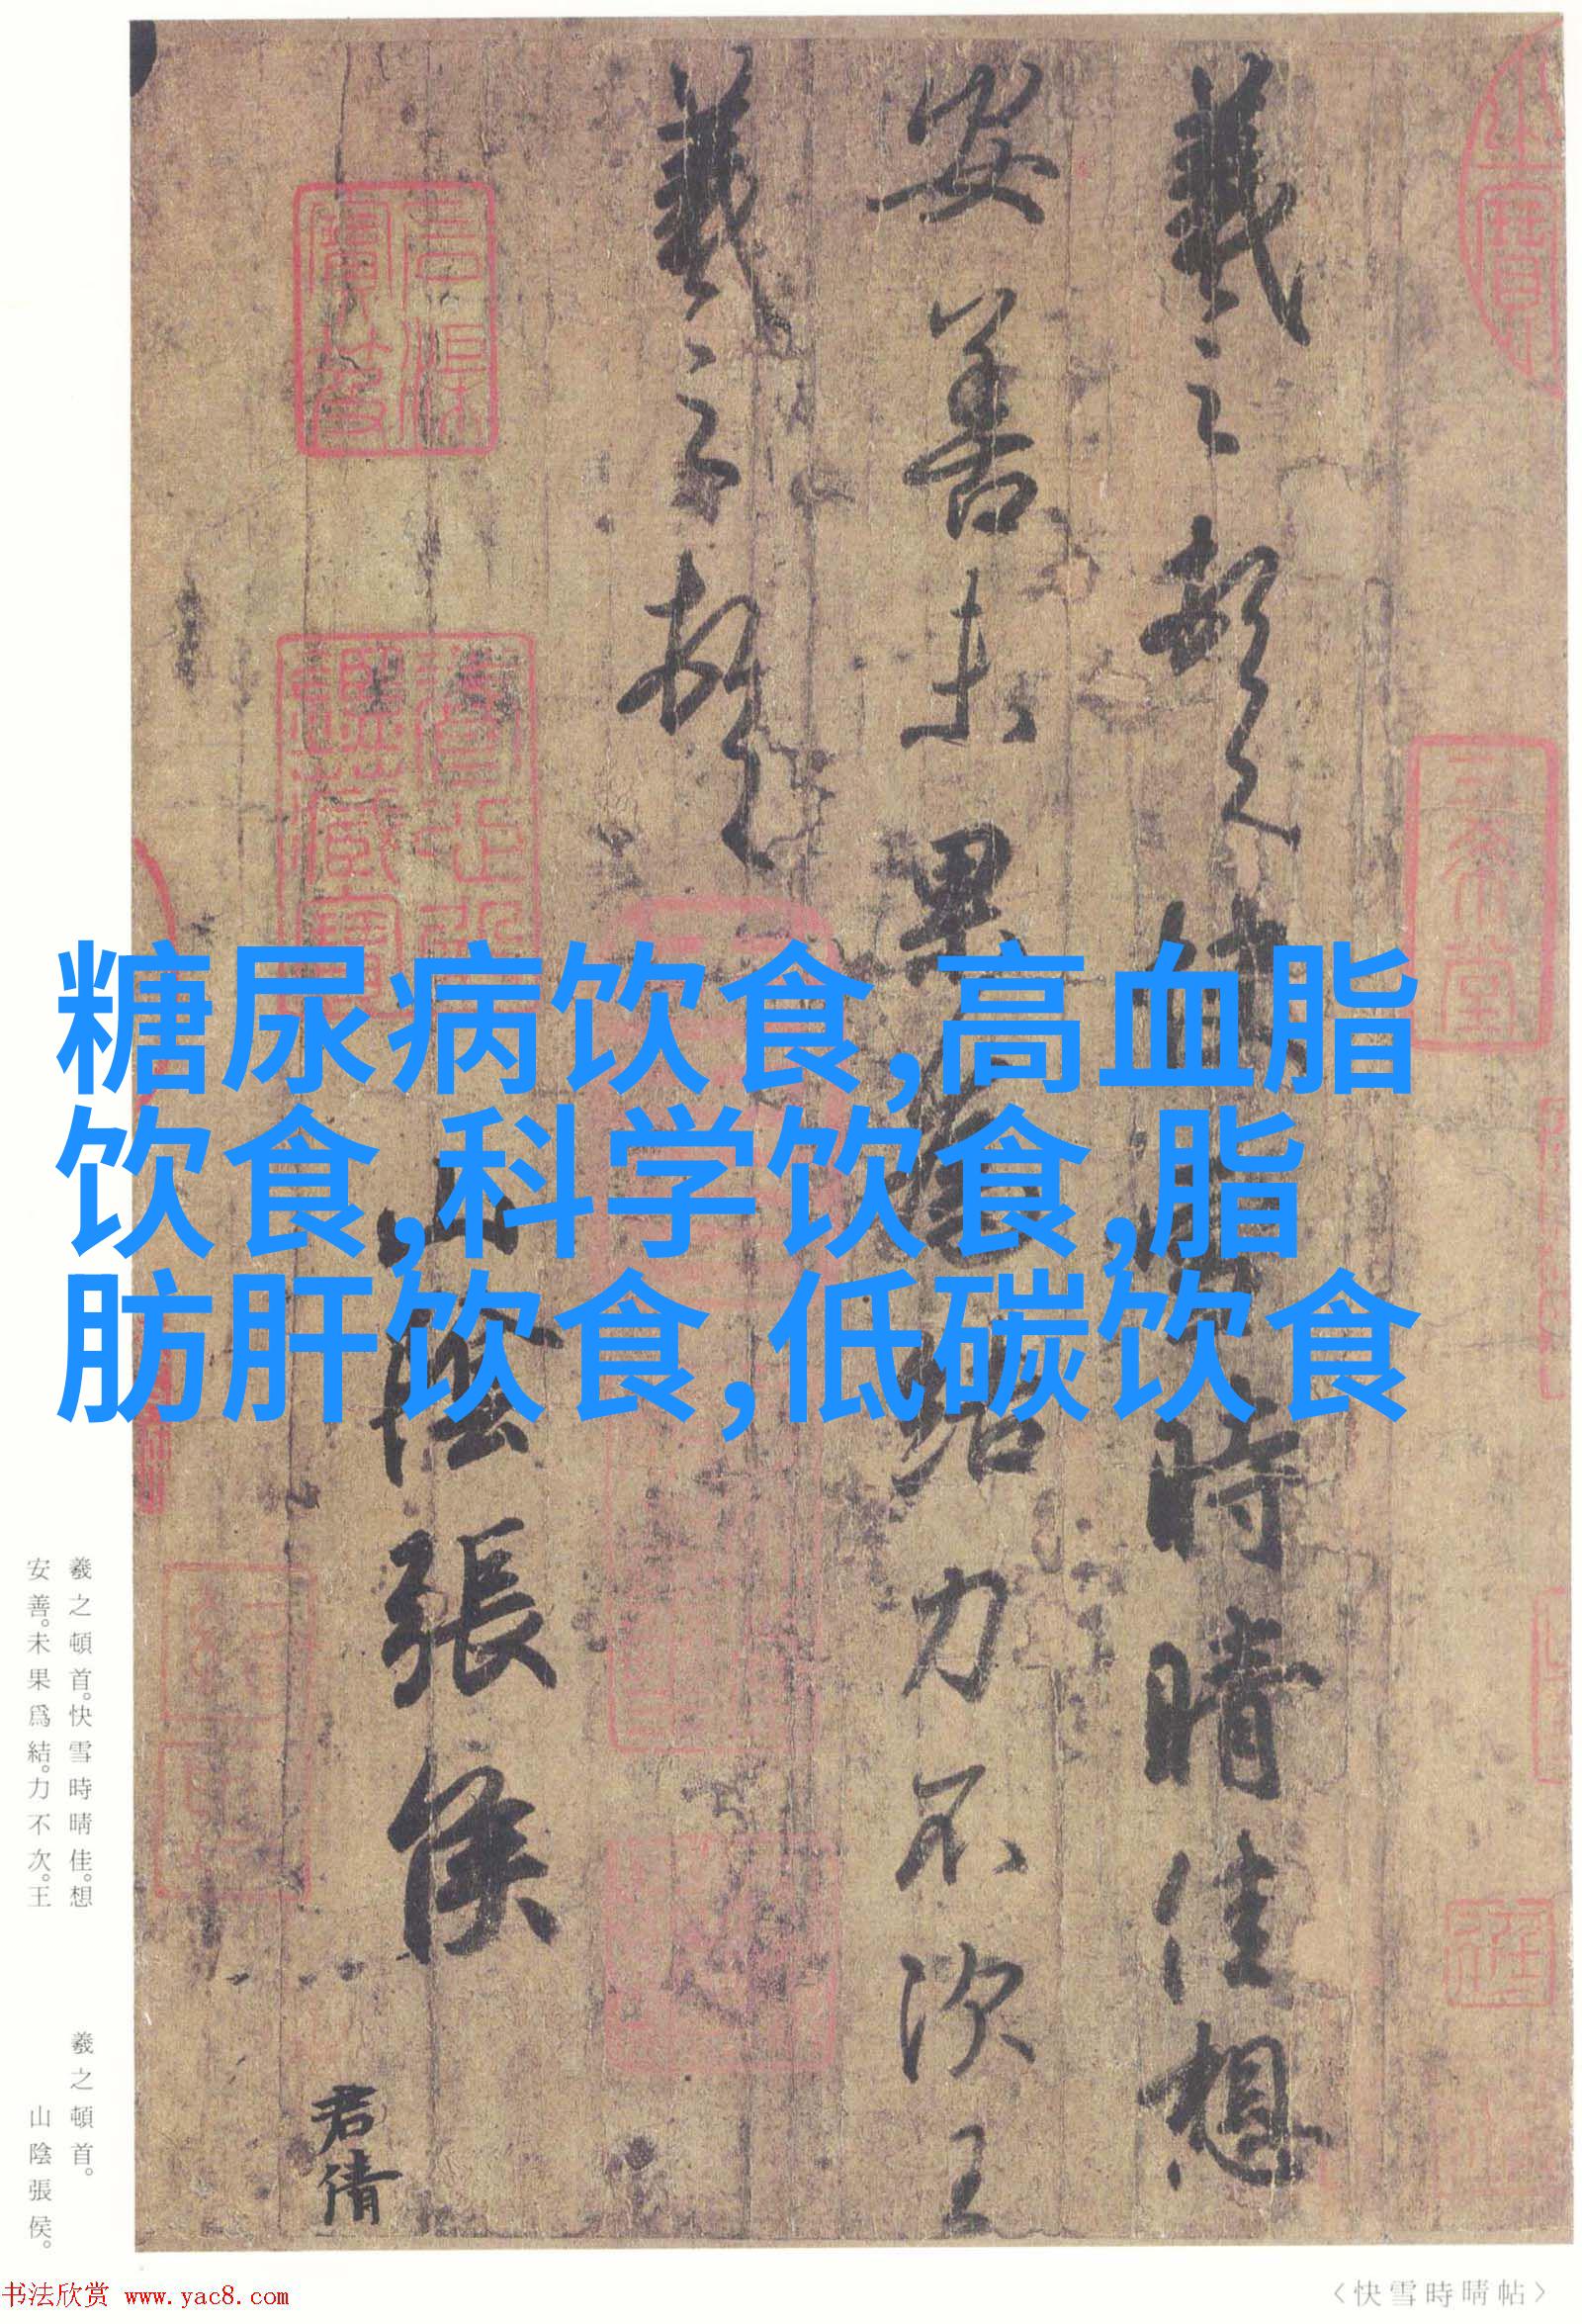 羲之頓首快雪時晴佳想
安善未果為結力不次王
羲之頓首
山陰張侯
君倩
三希堂
糖尿病饮食,高血脂
饮食,科学饮食,脂
肪肝饮食,低碳饮食
羲之頓首。快雪時晴佳。想
安善。未果爲結。力不次。王
羲之頓首。
山陰張侯。
〈快雪時晴帖〉
书法欣赏 www.yac8.com